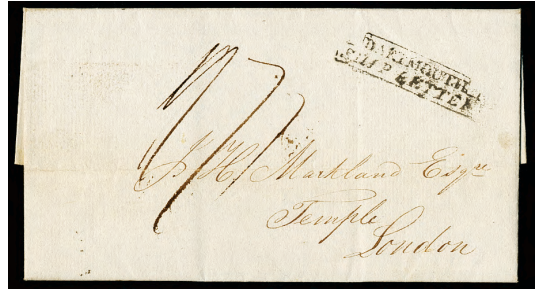 DARTMOUTH
SHIP LETTER
J. H. Markland Esqre
Temple
London